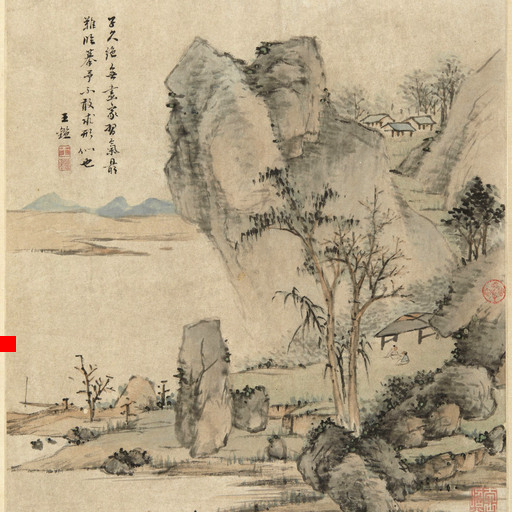 子久絕無畫家習氣最
難臨摹予不敢求形似也
王鑑